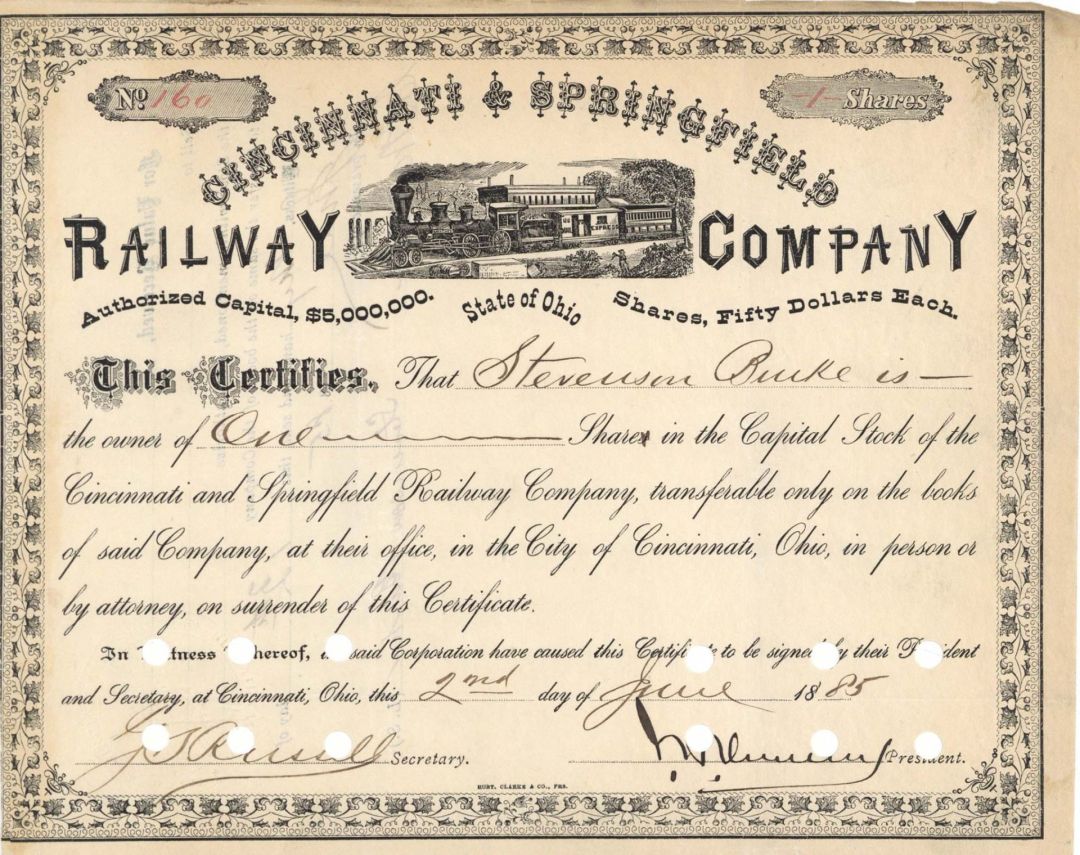 No 160
-1- Shares
CINCINNATI & SPRINGFIELD
RAILWAY COMPANY
EXPRESS
Authorized Capital, $5,000,000. State of Ohio Shares, Fifty Dollars Each.
This Certifies, That Stevenson Burke is —
the owner of One Share in the Capital Stock of the
Cincinnati and Springfield Railway Company, transferable only on the books
of said Company, at their office, in the City of Cincinnati, Ohio, in person or
by attorney, on surrender of this Certificate.
In Witness Whereof, said Corporation have caused this Certificate to be signed by their President
and Secretary, at Cincinnati, Ohio, this 2nd day of June 1885
G S Russell Secretary. President.
HURT, CLARKE & CO., PRS.